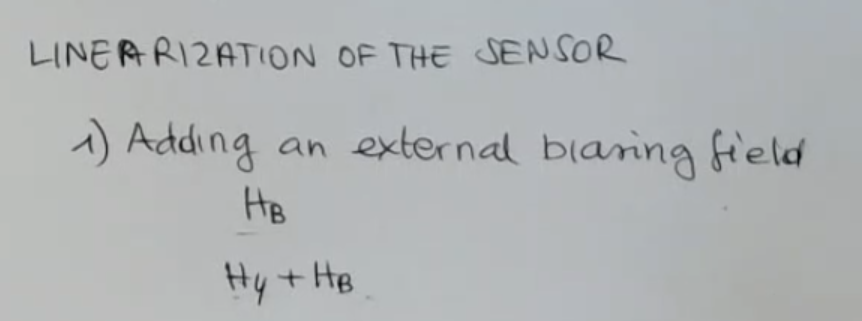 LINEARIZATION OF THE SENSOR
1) Adding an external biasing field
HB
Hy + HB